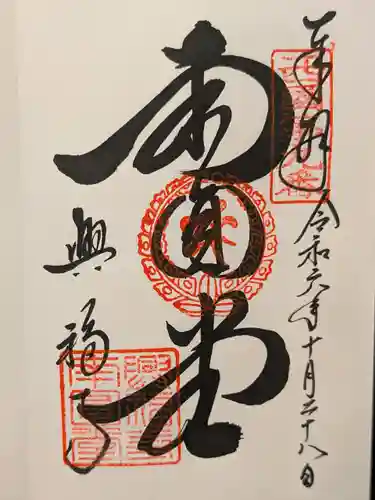 奉拝
令和六年十月二十八日
南円堂
興福寺